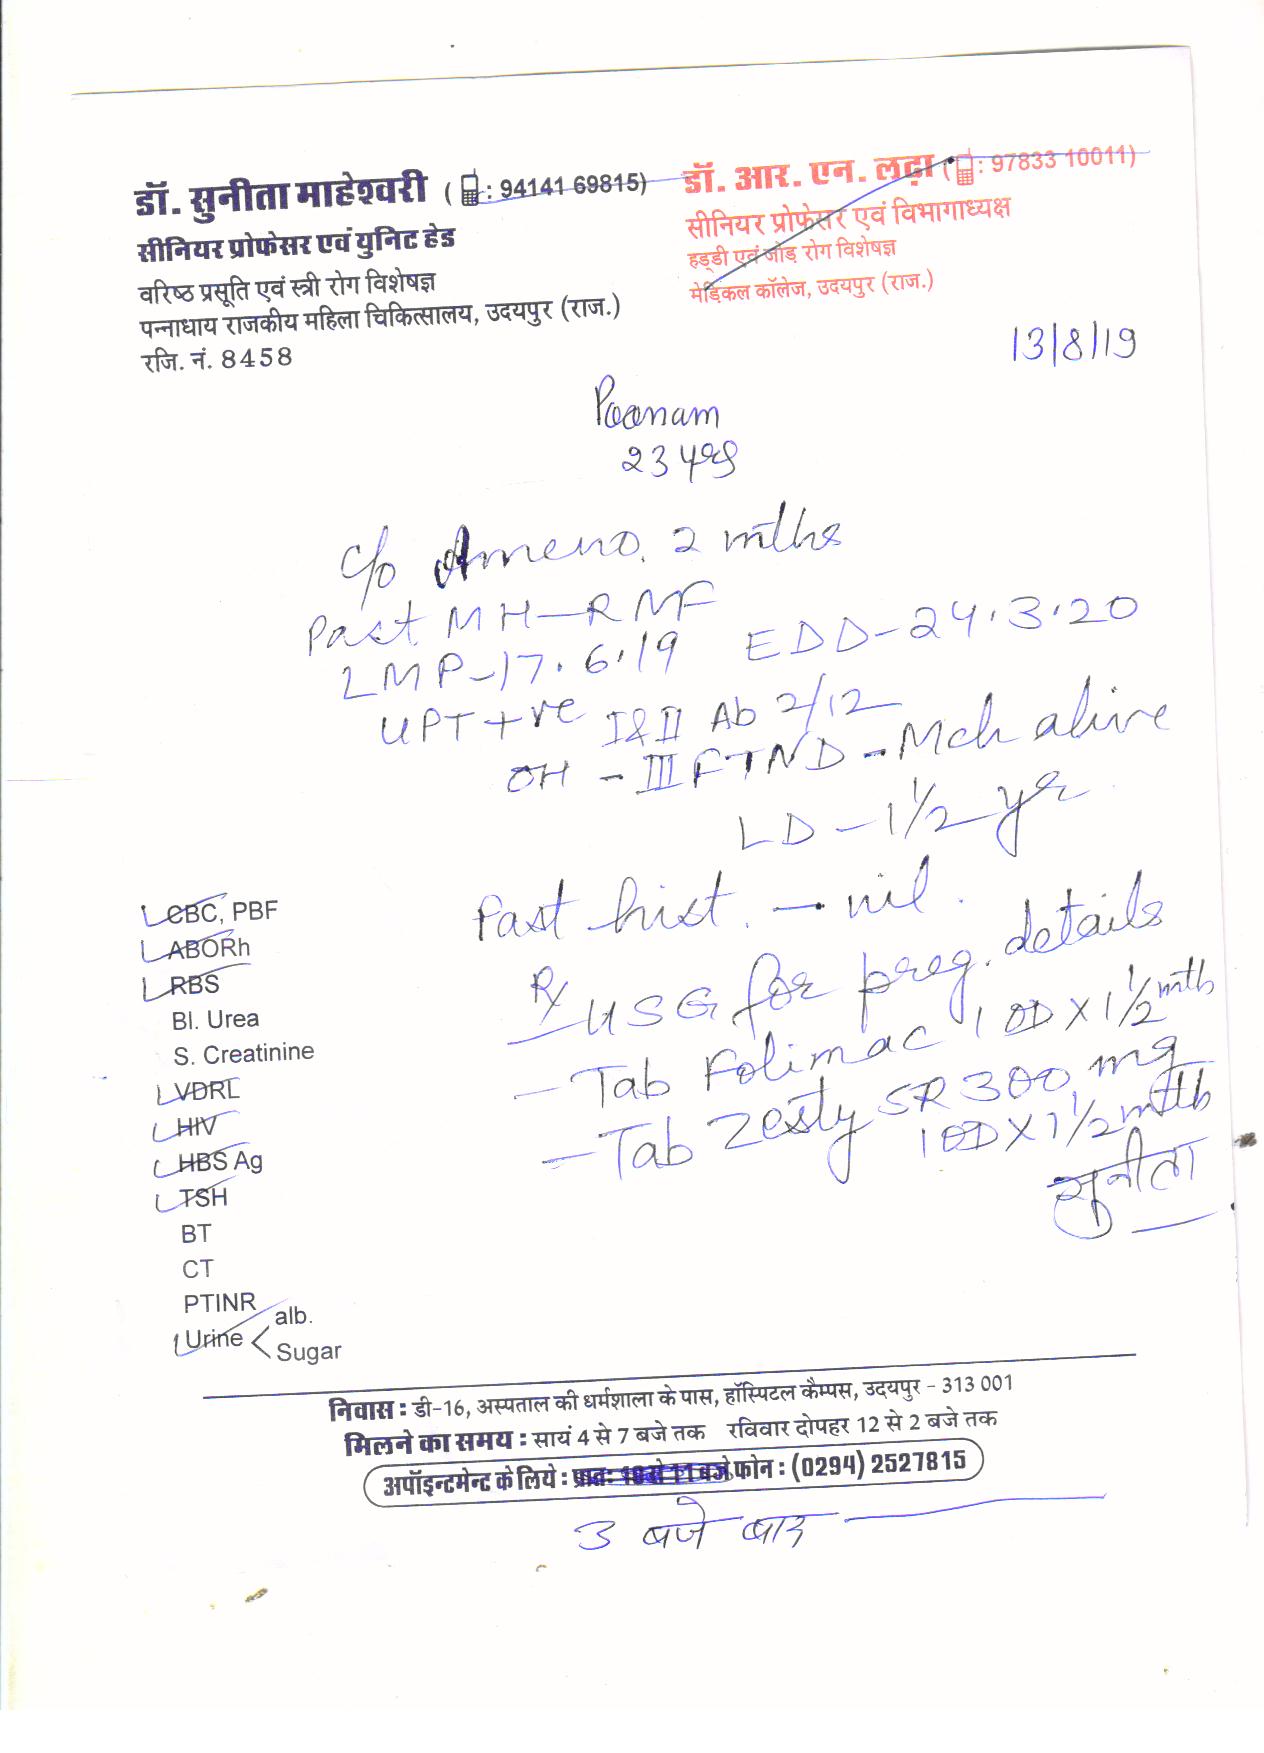 डॉ. सुनीता माहेश्वरी ( : 94141 69815)
सीनियर प्रोफेसर एवं युनिट हेड
वरिष्ठ प्रसूति एवं स्त्री रोग विशेषज्ञ
पन्नाधाय राजकीय महिला चिकित्सालय, उदयपुर (राज.)
रजि. नं. 8458
डॉ. आर. एन. लढ़ा ( : 97833 10011)
सीनियर प्रोफेसर एवं विभागाध्यक्ष
हड्डी एवं जोड़ रोग विशेषज्ञ
मेडिकल कॉलेज, उदयपुर (राज.)
13/8/19
Poonam
23 yrs
c/o Ameno. 2 mths
Past MH-RMF
LMP-17.6.19 EDD-24.3.20
UPT +ve I & II Ab 2/12
OH - III FTND - Mch alive
LD - 1 1/2 yr
Past hist. - nil.
Rx USG for preg. details
- Tab Folimac 1 OD X 1 1/2 mth
- Tab Zesty SR 300 mg
1 OD X 1 1/2 mth
सुनीता
CBC, PBF
ABORh
RBS
Bl. Urea
S. Creatinine
VDRL
HIV
HBS Ag
TSH
BT
CT
PTINR
Urine < alb.
Sugar
निवास : डी-16, अस्पताल की धर्मशाला के पास, हॉस्पिटल कैम्पस, उदयपुर - 313 001
मिलने का समय : सायं 4 से 7 बजे तक रविवार दोपहर 12 से 2 बजे तक
अपॉइन्टमेन्ट के लिये : प्रातः 10 से 11 बजे फोन : (0294) 2527815
3 बजे बाद